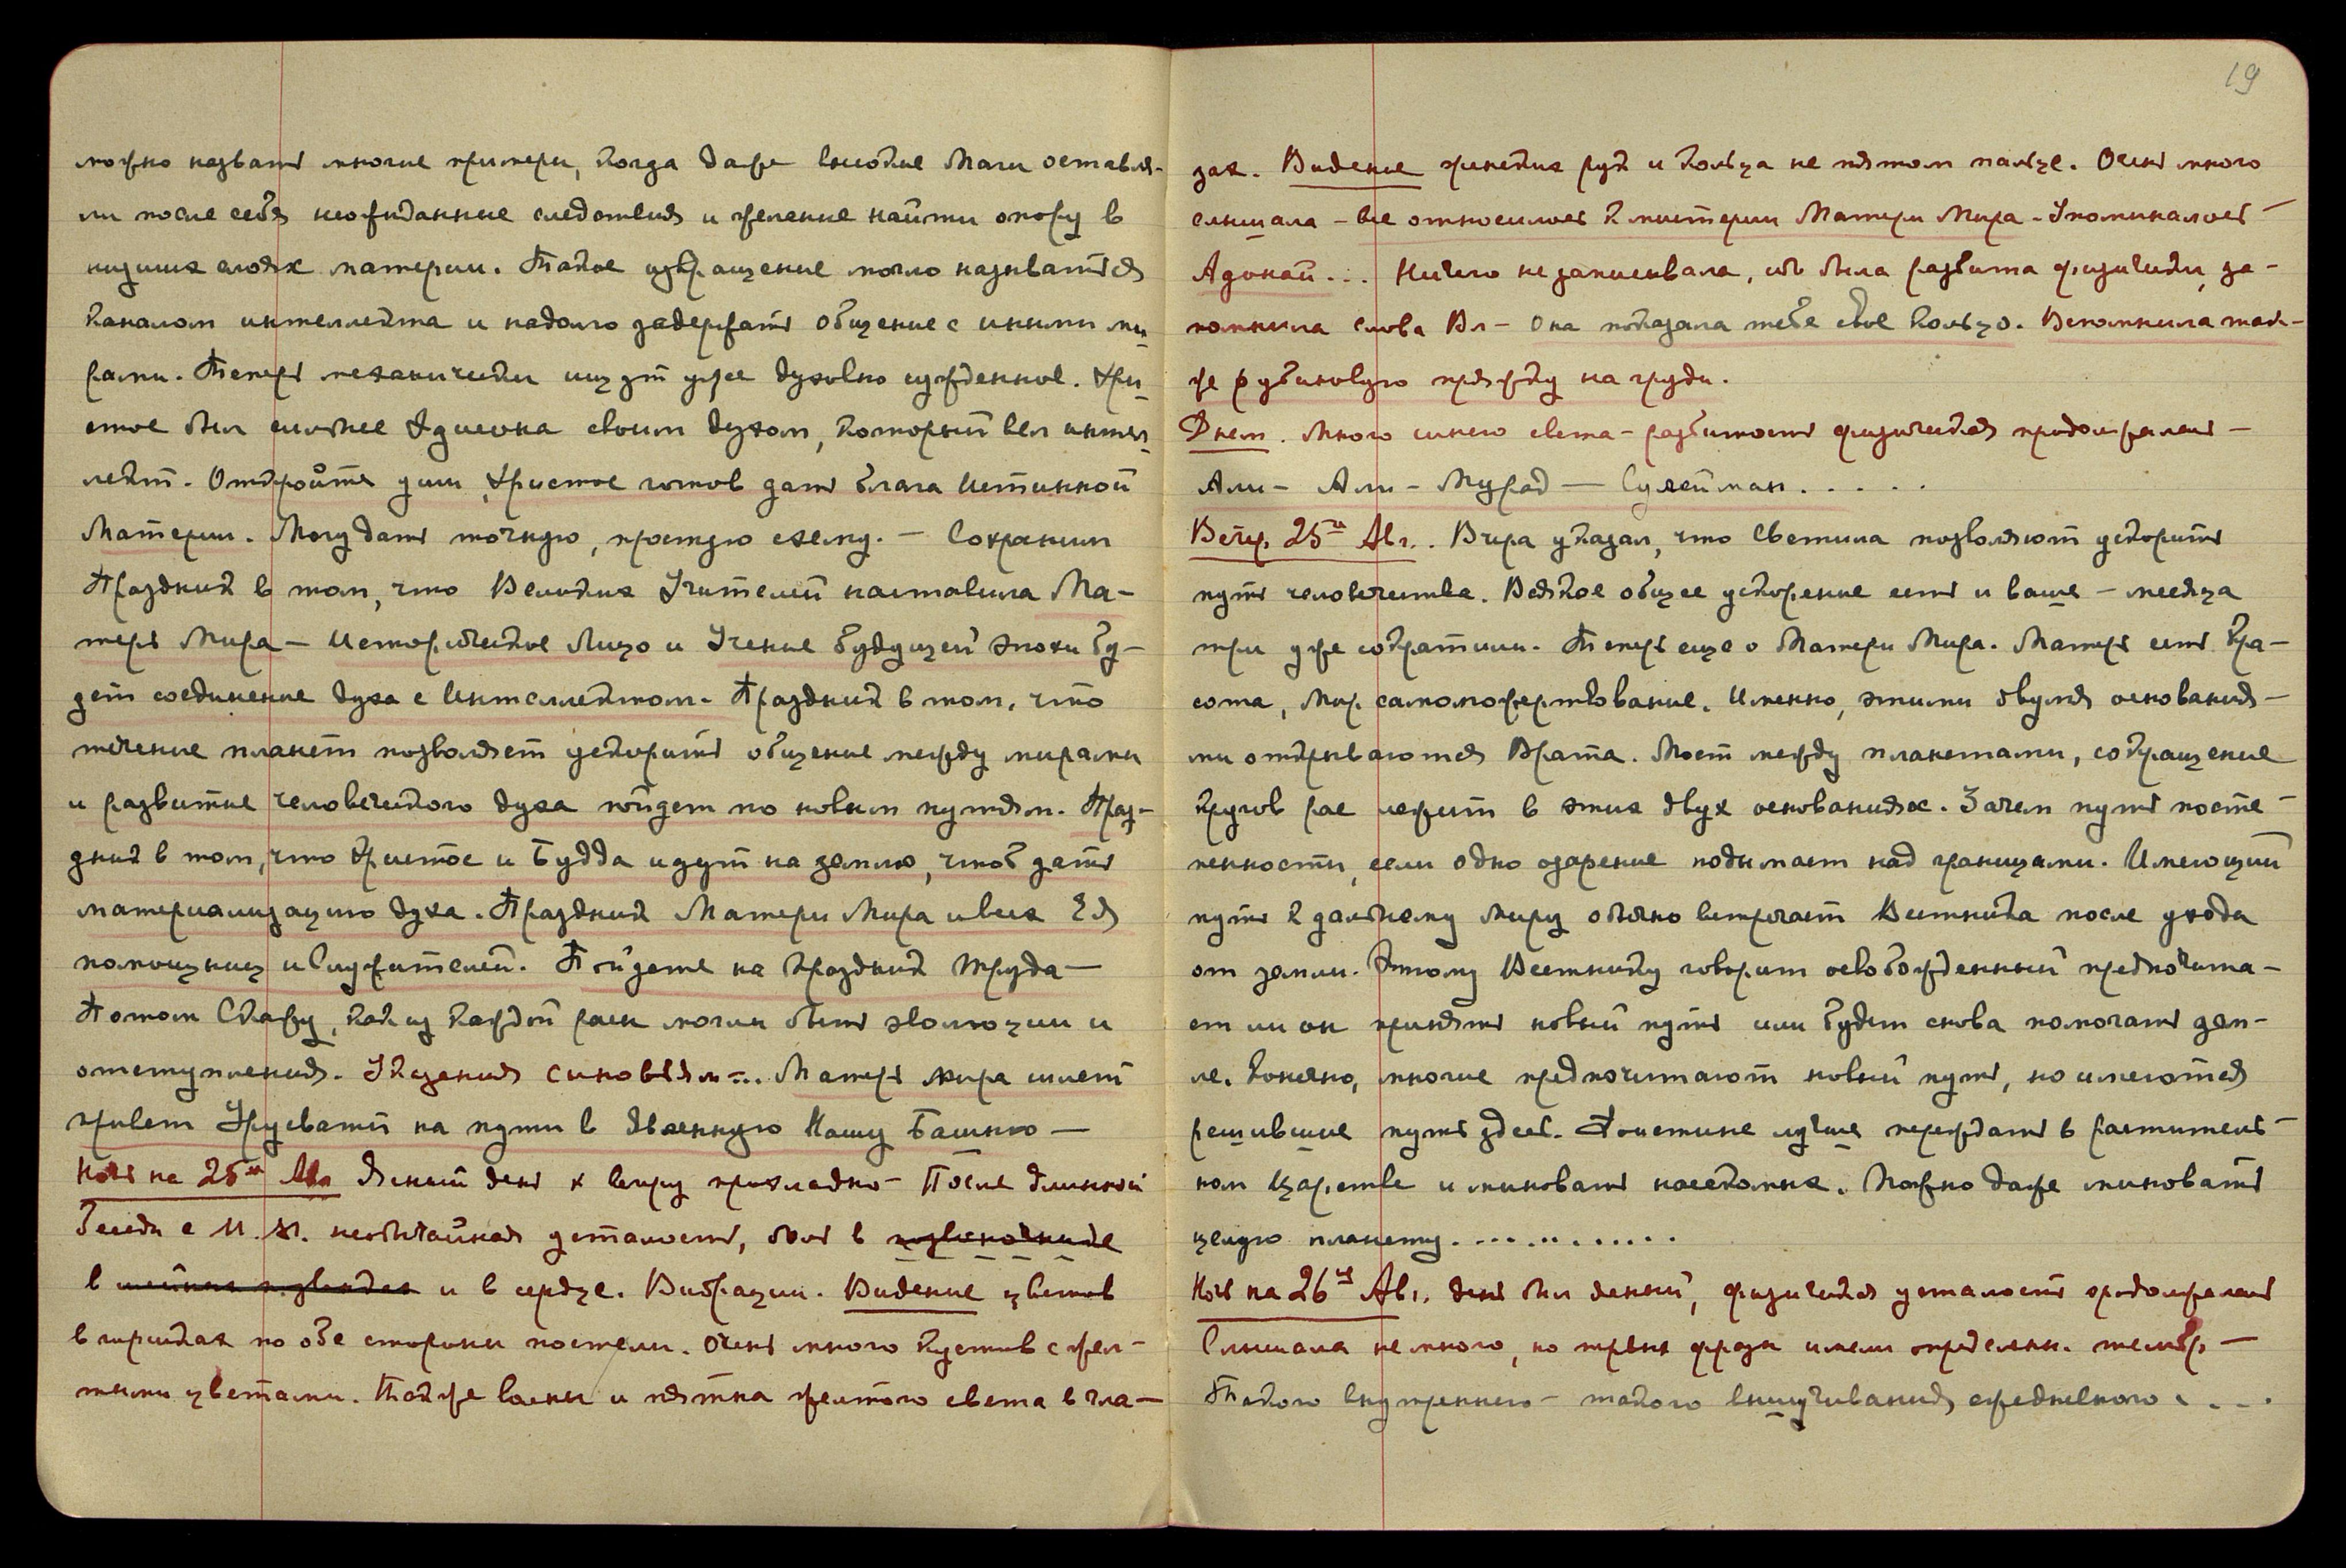 можно назвать многие примеры, когда даже высокие Маги оставля-
ли после себя неожиданные следствия и желание найти опору в
низших слоях материи. Такое извращение могло называться
каналом интеллекта и надолго задержать общение с иными ми
рами. Теперь механически ищут уже духовно сужденное. Хри
стос был сильнее своим духом, который вел интел
лект. Откройте уши, Христос готов дать блага Истинной
Материи. Могу дать точную, простую схему. — Сохраним
Праздник в том, что Великих Учителей наставила Ма-
терь Мира — Историческое Лицо и Учение будущей эпохи бу-
дет соединение духа с Интеллектом. Праздник в том, что
течение планет позволяет ускорить общение между мирами
и развитие человеческого духа пойдет по новым путям. Праз-
дник в том, что Христос и Будда идут на землю, чтоб дать
материализацию духа. Праздник Матери Мира и всех Ея
помощниц и Служителей. Пойдете на праздник труда —
Потом Скажу, как из каждой расы могли быть эволюции и
отступления. Указания сыновьям... Матерь мира шлет
привет Урусвати на пути в Нашу Башню —
Ночь на 25ое Авг Ясный день к вечеру прохладно — После длинной
беседы с М. М. необычайная усталость, боль в позвоночнике
в шейных позвонках и в сердце. Вибрации. Видение цветов
в горшках по обе стороны постели. Очень много кустов с жел-
тыми цветами. Также волны и пятна желтого света в гла-
19
зах. Видение женских рук и кольца на пятом пальце. Очень много
слышала — все относилось к мистерии Матери Мира. Упоминалось —
Адонай... Ничего не записывала, ибо была разбита физически, за-
помнила слова Вл — Она показала тебе свое кольцо. Вспомнила так-
же рубиновую пряжку на груди.
Днем. Много синего света — разбитость физическая продолжалась —
Али — Али — Мурад — Сулейман.....
Вечер 25ое Авг.. Вчера указал, что Светила позволяют ускорить
путь человечества. Всякое общее ускорение есть и ваше — месяца
три уже сократили. Теперь еще о Матери Мира. Матерь есть Кра-
сота, Мир самопожертвование. Именно, этими двумя основания-
ми открываются Врата. Мост между планетами, сокращение
кругов рас лежит в этих двух основаниях. Зачем путь посте-
пенности, если одно озарение подымает над границами. Имеющий
путь к дальнему миру обычно встречает Вестника после ухода
от земли. Этому Вестнику говорит освобожденный предпочита-
ет ли он принять новый путь или будет снова помогать зем-
ле. Конечно, многие предпочитают новый путь, но имеются
решившие путь здесь. Поистине лучше переждать в раститель-
ном царстве и миновать насекомых. Можно даже миновать
целую планету.............
Ночь на 26ое Авг. день был ясный, физическая усталость продолжалась
Слышала не много, но фразы имели определенн. тембр —
Такого внутреннего — такого вышучивания ежедневного....